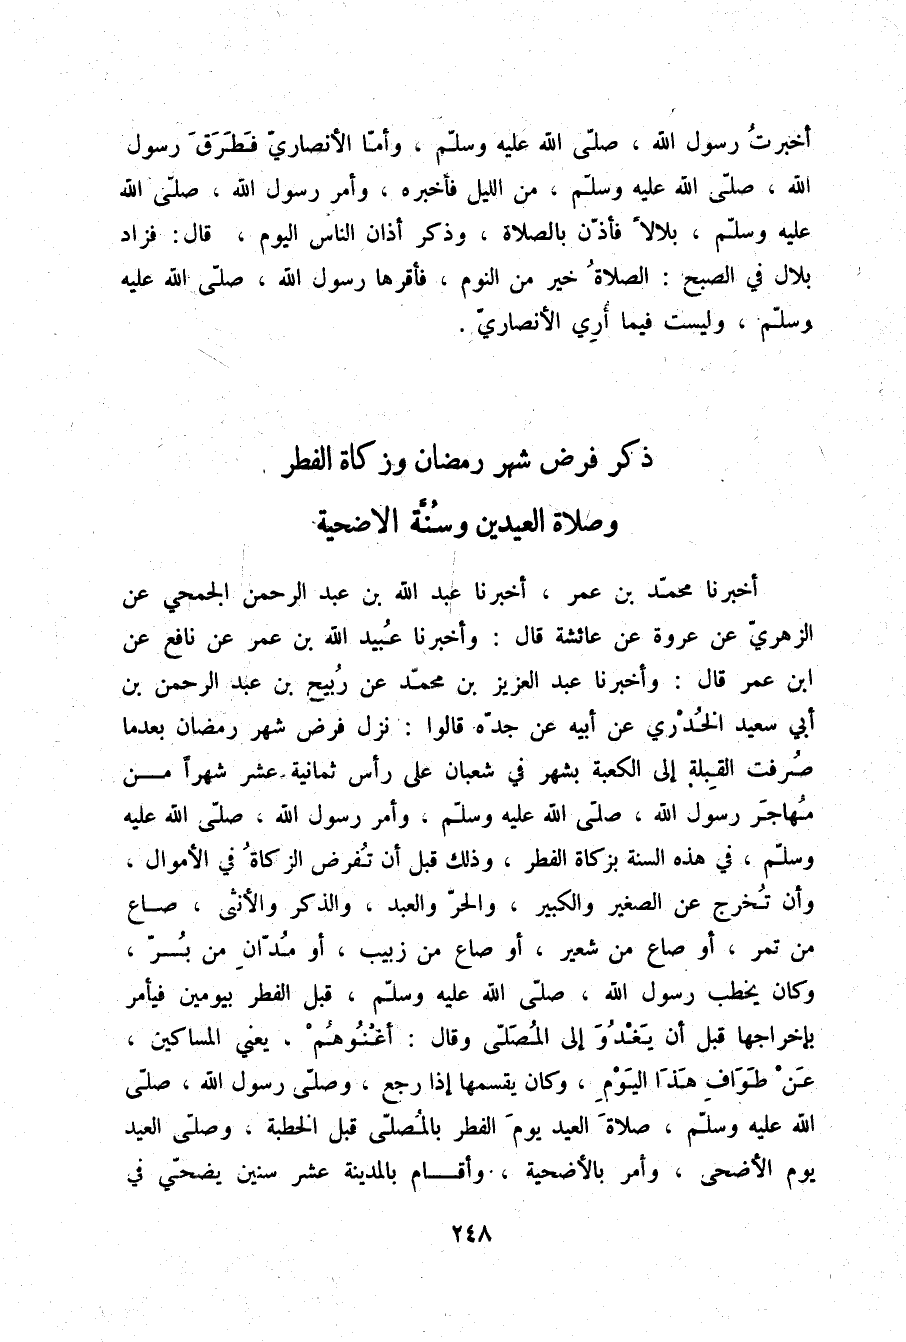 أخبرتُ رسول الله ، صلّى الله عليه وسلّم ، وأمّا الأنصاريّ فَطَرَقَ رسول
الله ، صلّى الله عليه وسلّم ، من الليل فأخبره ، وأمر رسول الله ، صلّى الله
عليه وسلّم ، بلالاً فأذّن بالصلاة ، وذكر أذان الناس اليوم ، قال : فزاد
بلال في الصبح : الصلاةُ خير من النوم ، فأقرها رسول الله ، صلّى الله عليه
وسلّم ، وليست فيما أُرِي الأنصاريّ .
ذكر فرض شهر رمضان وزكاة الفطر
وصلاة العيدين وسُنَّة الاضحية
أخبرنا محمّد بن عمر ، أخبرنا عبد الله بن عبد الرحمن الجمحي عن
الزهريّ عن عروة عن عائشة قال : وأخبرنا عُبيد الله بن عمر عن نافع عن
ابن عمر قال : وأخبرنا عبد العزيز بن محمّد عن رُبيح بن عبد الرحمن بن
أبي سعيد الخُدْري عن أبيه عن جدّه قالوا : نزل فرض شهر رمضان بعدما
صُرفت القِبلة إلى الكعبة بشهر في شعبان على رأس ثمانية عشر شهراً مـــن
مُهاجَر رسول الله ، صلّى الله عليه وسلّم ، وأمر رسول الله ، صلّى الله عليه
وسلّم ، في هذه السنة بزكاة الفطر ، وذلك قبل أن تُفرض الزكاةُ في الأموال ،
وأن تُخرج عن الصغير والكبير ، والحرّ والعبد ، والذكر والأنثى ، صـاع
من تمر ، أو صاع من شعير ، أو صاع من زبيب ، أو مُدّانِ من بُـــرّ ،
وكان يخطب رسول الله ، صلّى الله عليه وسلّم ، قبل الفطر بيومين فيأمر
بإخراجها قبل أن يَغْدُوَ إلى المُصَلّى وقال : أغْنُوهُمْ . يعني المساكين ،
عَنْ طَوَافِ هَذَا اليَوْمِ ، وكان يقسمها إذا رجع ، وصلّى رسول الله ، صلّى
الله عليه وسلّم ، صلاةَ العيد يومَ الفطر بالمُصلّى قبل الخطبة ، وصلّى العيد
يوم الأضحى ، وأمر بالأضحية ، وأقـــام بالمدينة عشر سنين يضحّي في
٢٤٨